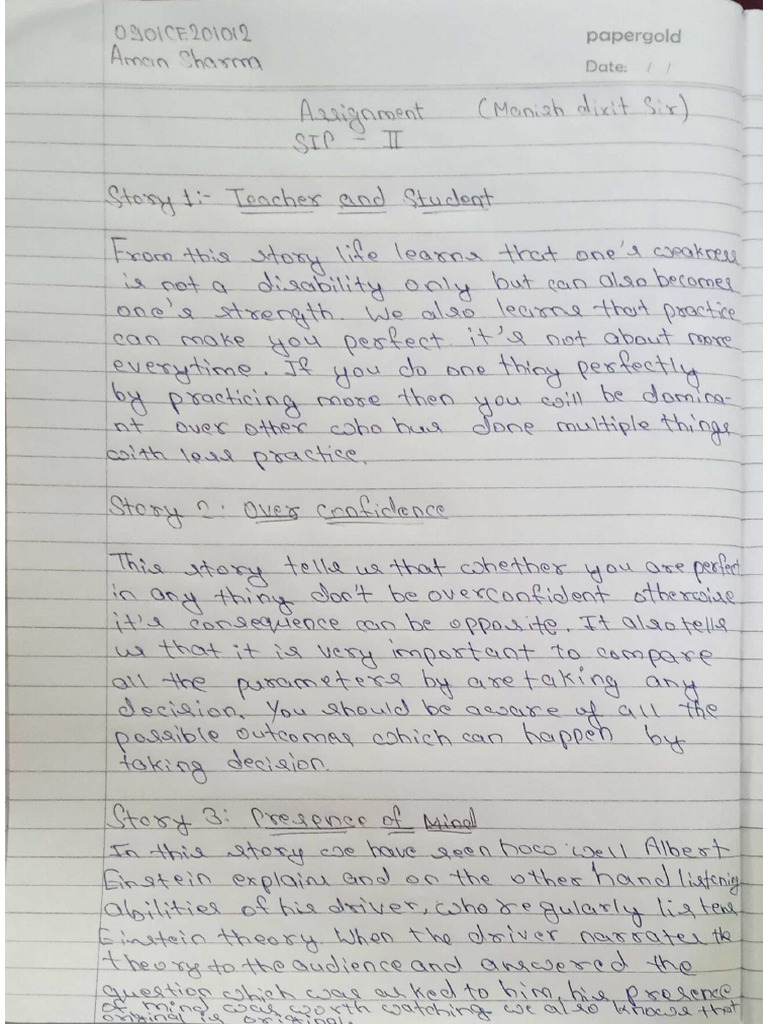 0901CE201012
papergold
Aman Sharma
Date: / /
Assignment (Manish dixit Sir)
SIP - II
Story 1:- Teacher and Student
From this story life learns that one's weakness
is not a disability only but can also becomes
one's strength. We also learns that practice
can make you perfect it's not about more
everytime. If you do one thing perfectly
by practicing more then you will be domina-
nt over other who has done multiple things
with less practice.
Story 2: Over Confidence
This story tells us that whether you are perfect
in any thing don't be overconfident otherwise
it's consequence can be opposite. It also tells
us that it is very important to compare
all the parameters by are taking any
decision. You should be aware of all the
possible outcomes which can happen by
taking decision.
Story 3: Presence of Mind
In this story we have seen how well Albert
Einstein explains and on the other hand listening
abilities of his driver, who regularly listens
Einstein theory. When the driver narrates the
theory to the audience and answered the
question which was asked to him, his presence
of mind was worth watching we also knows that
original is original.